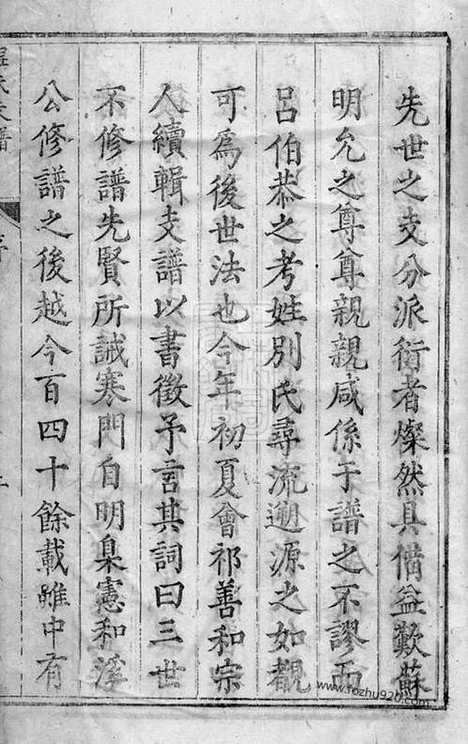 先世之支分派衍者燦然具備益歎蘇
明允之尊尊親親咸係于譜之不謬而
呂伯恭之考姓別氏尋流遡源之如覩
可為後世法也今年初夏會祁善和宗
人續輯支譜以書徵予言其詞曰三世
不修譜先賢所誡寒門自明臬憲和溪
公修譜之後越今百四十餘載雖中有
氏支譜
序
www.fozhu920.com